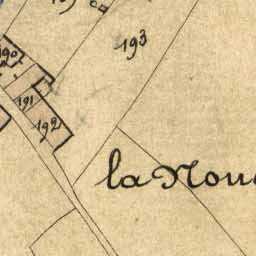 193
190
191
192
la Nou